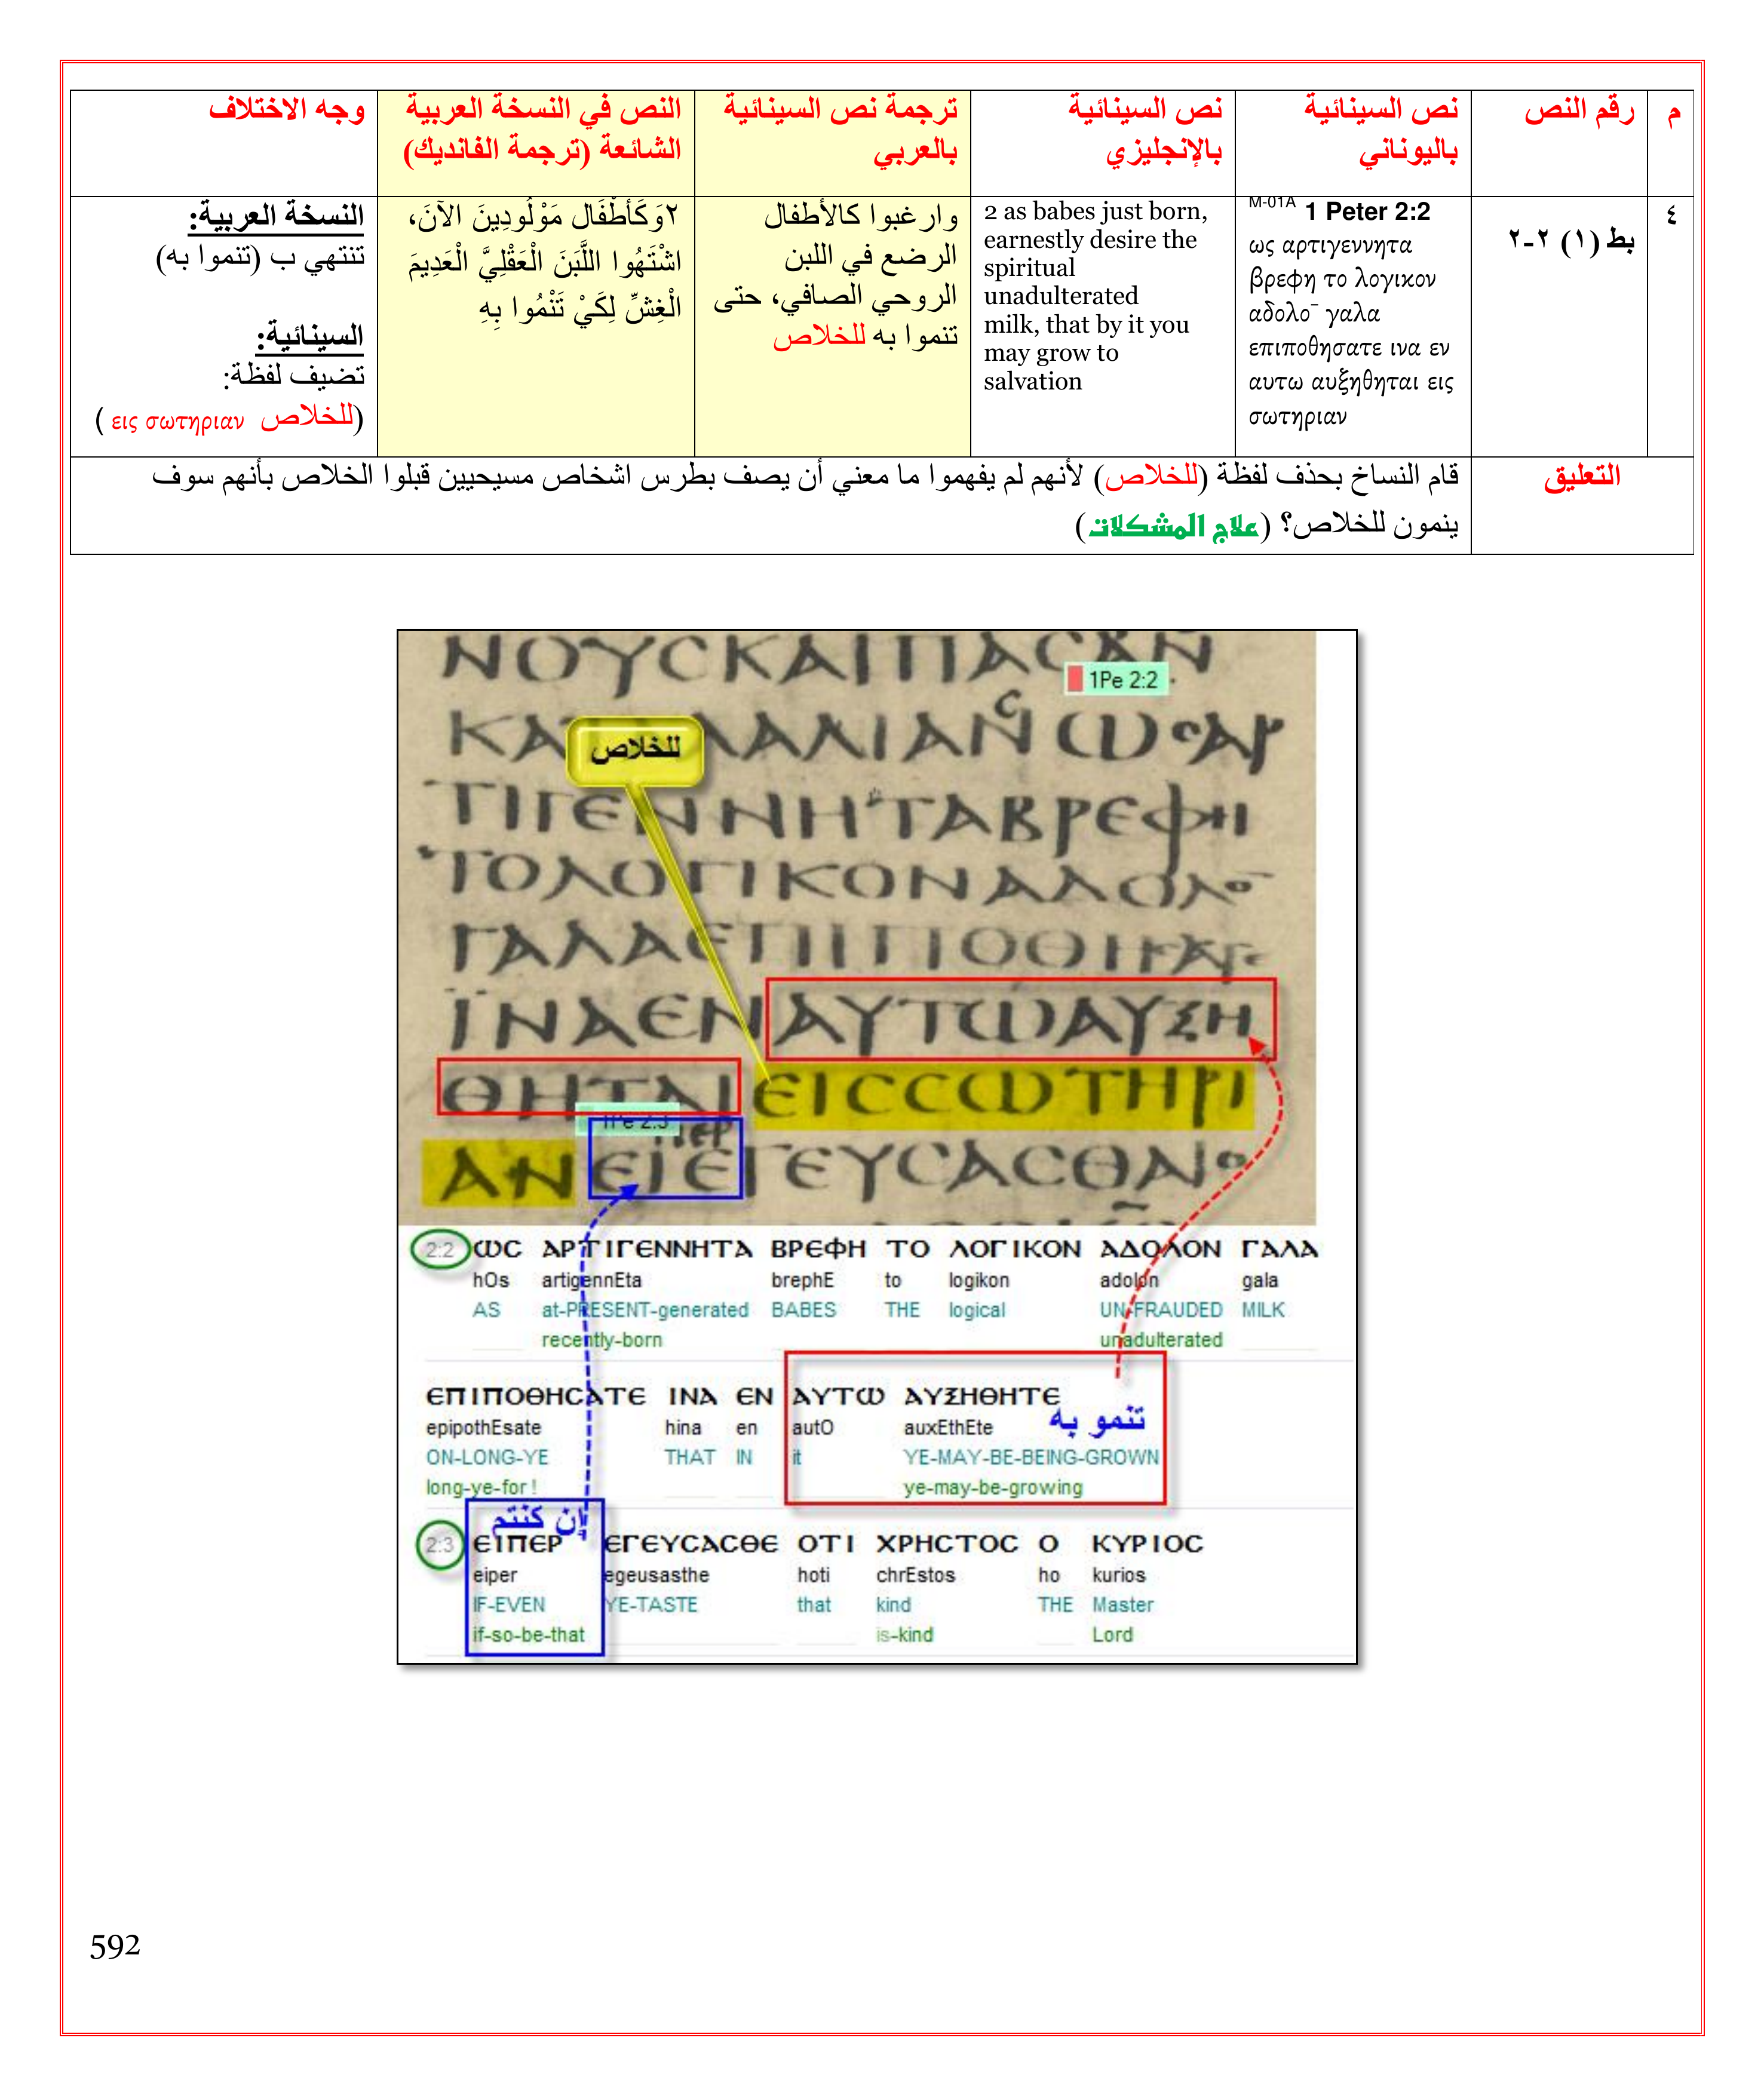 م
رقم النص
نص السينائية
باليوناني
نص السينائية
بالإنجليزي
ترجمة نص السينائية
بالعربي
النص في النسخة العربية
الشائعة (ترجمة الفانديك)
وجه الاختلاف
٤
بط (١) ٢-٢
M-01A 1 Peter 2:2
ως αρτιγεννητα
βρεφη το λογικον
αδολο¯ γαλα
επιποθησατε ινα εν
αυτω αυξηθηται εις
σωτηριαν
2 as babes just born,
earnestly desire the
spiritual
unadulterated
milk, that by it you
may grow to
salvation
وارغبوا كالأطفال
الرضع في اللبن
الروحي الصافي، حتى
تنموا به للخلاص
٢وَكَأَطْفَال مَوْلُودِينَ الآنَ،
اشْتَهُوا اللَّبَنَ الْعَقْلِيَّ الْعَدِيمَ
الْغِشِّ لِكَيْ تَنْمُوا بِهِ
النسخة العربية:
تنتهي ب (تنموا به)
السينائية:
تضيف لفظة:
(للخلاص εις σωτηριαν )
التعليق
قام النساخ بحذف لفظة (للخلاص) لأنهم لم يفهموا ما معني أن يصف بطرس اشخاص مسيحيين قبلوا الخلاص بأنهم سوف
ينمون للخلاص؟ (علاج المشكلات)
ΝΟΥCΚΑΙΠΑCΑΝ
1Pe 2:2
للخلاص
ΤΙΓΕΝΝΗΤΑΒΡΕΦΗ
ΤΟΛΟΓΙΚΟΝΑΔΟΛΟ¯
ΓΑΛΑΕΠΙΠΟΘΗCΑΤΕ
ΪΝΑΕΝΑΥΤΩΑΥΞΗ
ΘΗΤΑΙΕΙCCΩΤΗΡΙ
1Pe 2:3
ΠΕΡ
ΑΝΕΙΕΓΕΥCΑCΘΑΙ
2:2 ΩC ΑΡΤΙΓΕΝΝΗΤΑ ΒΡΕΦΗ ΤΟ ΛΟΓΙΚΟΝ ΑΔΟΛΟΝ ΓΑΛΑ
hOs artigennEta brephE to logikon adolon gala
AS at-PRESENT-generated BABES THE logical UN-FRAUDED MILK
recently-born unadulterated
ΕΠΙΠΟΘΗCΑΤΕ ΙΝΑ ΕΝ ΑΥΤΩ ΑΥΞΗΘΗΤΕ
epipothEsate hina en autO auxEthEte
تنمو به
ON-LONG-YE THAT IN it YE-MAY-BE-BEING-GROWN
long-ye-for ! ye-may-be-growing
إن كنتم
2:3 ΕΙΠΕΡ ΕΓΕΥCΑCΘΕ ΟΤΙ ΧΡΗCΤΟC Ο ΚΥΡΙΟC
eiper egeusasthe hoti chrEstos ho kurios
IF-EVEN YE-TASTE that kind THE Master
if-so-be-that is-kind Lord
592